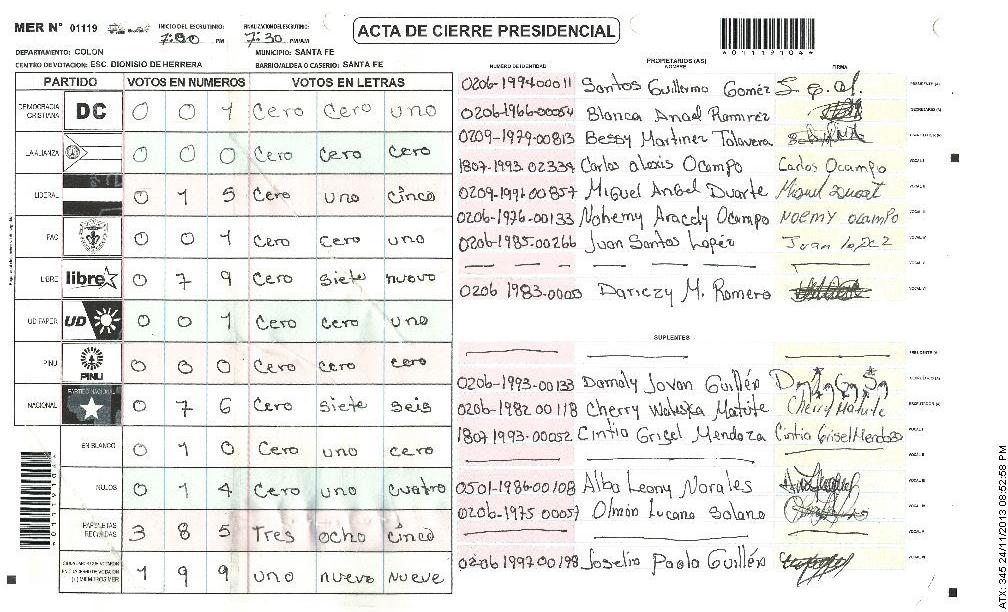 MER N° 01119 INICIO DEL ESCRUTINIO: 7:00 PM FINALIZACION ESCRUTINIO: 7:30 PM/AM
ACTA DE CIERRE PRESIDENCIAL
*01119104*
DEPARTAMENTO: COLON MUNICIPIO: SANTA FE
CENTRO DE VOTACION: ESC. DIONISIO DE HERRERA BARRIO/ALDEA O CASERIO: SANTA FE
PARTIDO VOTOS EN NUMEROS VOTOS EN LETRAS
DEMOCRACIA CRISTIANA DC 0 0 1 Cero Cero uno
LA ALIANZA 0 0 0 Cero Cero cero
LIBERAL 0 1 5 Cero uno cinco
FAC 0 0 1 Cero Cero uno
LIBRE libre 0 7 9 Cero Siete nuevo
UD FAPER UD 0 0 1 Cero Cero uno
PINU PINU 0 0 0 Cero Cero cero
NACIONAL PARTIDO NACIONAL 0 7 6 Cero Siete seis
EN BLANCO 0 1 0 Cero uno cero
NULOS 0 1 4 Cero uno cuatro
PAPELETAS RECIBIDAS 3 8 5 Tres ocho cinco
1 9 9 uno nuevo nueve
PROPIETARIOS (AS)
NUMERO DE IDENTIDAD NOMBRE FIRMA
0206-1994000 11 Santos Guillermo Goméz
0206-1966-00054 Blanca Anael Ramirez
0209-1979-00813 Bessy Martinez Talavera
1807-1993 02334 Carlos alexis Ocampo Carlos Ocampo
0209-1991-00857 Miguel Angel Duarte
0206-1976-00133 Nohemy Aracely Ocampo NOEMY OCAMPO
0206-1985-00266 Juan Santos Lopéz Juan lopez
0206 1983-0005 Dariczy M. Romero
SUPLENTES
0206-1993-00133 Damaly Jovan Guillén
0206-1982 00118 Cherry Waleska Matute Cherry Matute
1807 1993-00052 Cintia Grisel Mendoza Cintia Grisel Mendoza
0501-1986-00108 Alba Leony Norales
0206-1975 00057 Olmán Lucano Solano
0206-1997 00198 Joselin Paola Guillén
*01119104*
ATX: 345 24/11/2013 08:52:58 PM